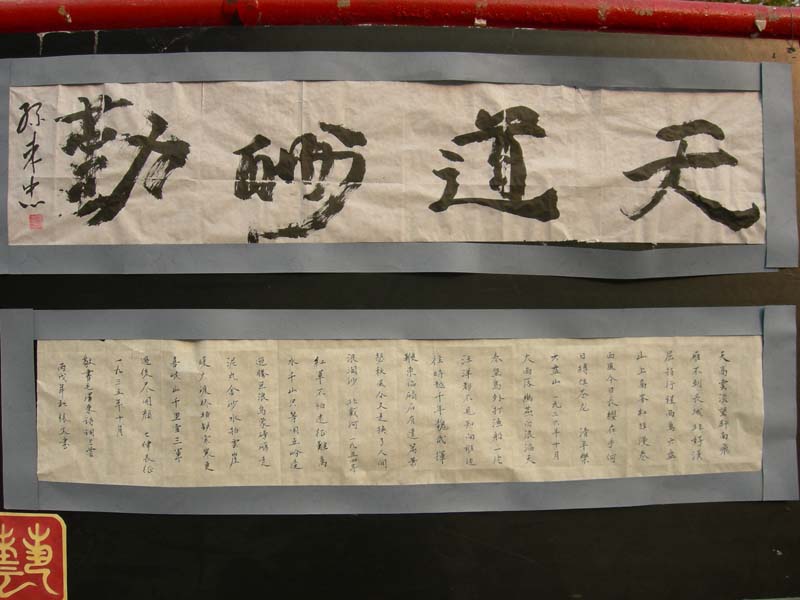 天道酬勤
天高雲淡望斷南飛
雁不到長城非好漢
屈指行程兩萬六盤
山上高峯紅旗漫卷
西風今日長纓在手何
日縛住蒼龙 清平樂
六盘山 一九三六年十月
大雨落幽燕白浪滔天
秦皇島外打漁船一片
汪洋都不見知向誰邊
往時越千年魏武揮
鞭東臨碣石有遺篇蕭
瑟秋風今又是换了人间
浪淘沙 北戴河 一九五四年
红軍不怕遠征難萬
水千山只等闲五岭逶
迤騰细浪烏蒙磅礴走
泥丸金沙水拍雲崖
暖大渡桥横铁索寒更
喜岷山千里雪三軍
過後尽開颜 七律長征
一九三五年十月
敬書毛澤東詩詞三首
丙戌年秋張文書
藝